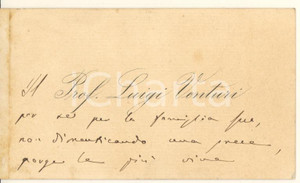 Il Prof. Luigi Venturi
per sé e per la famiglia sua,
non dimenticando una
porge le più vive
Charta